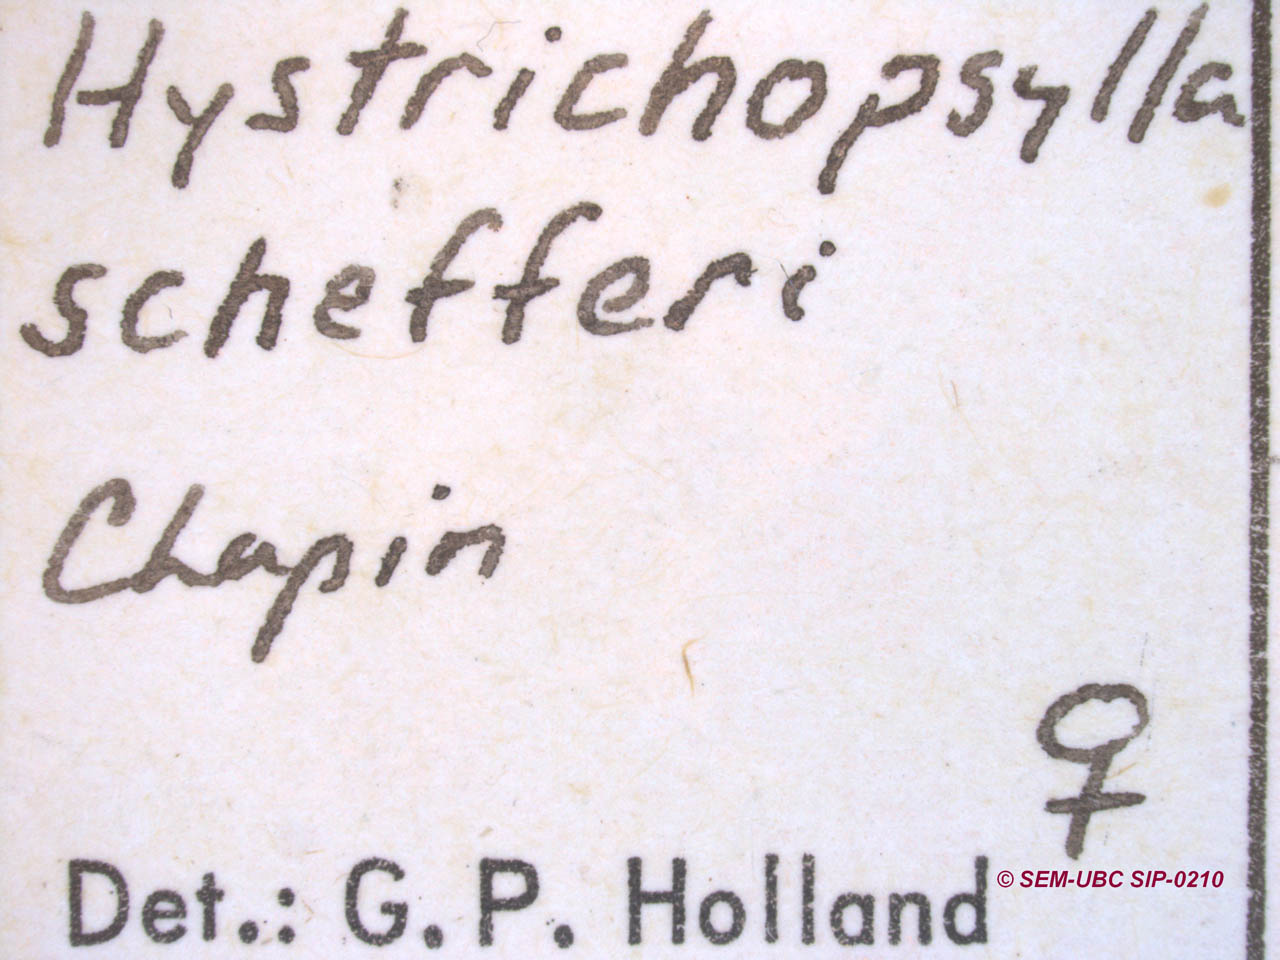 Hystrichopsylla
schefferi
Chapin
♀
Det.: G. P. Holland
© SEM-UBC SIP-0210